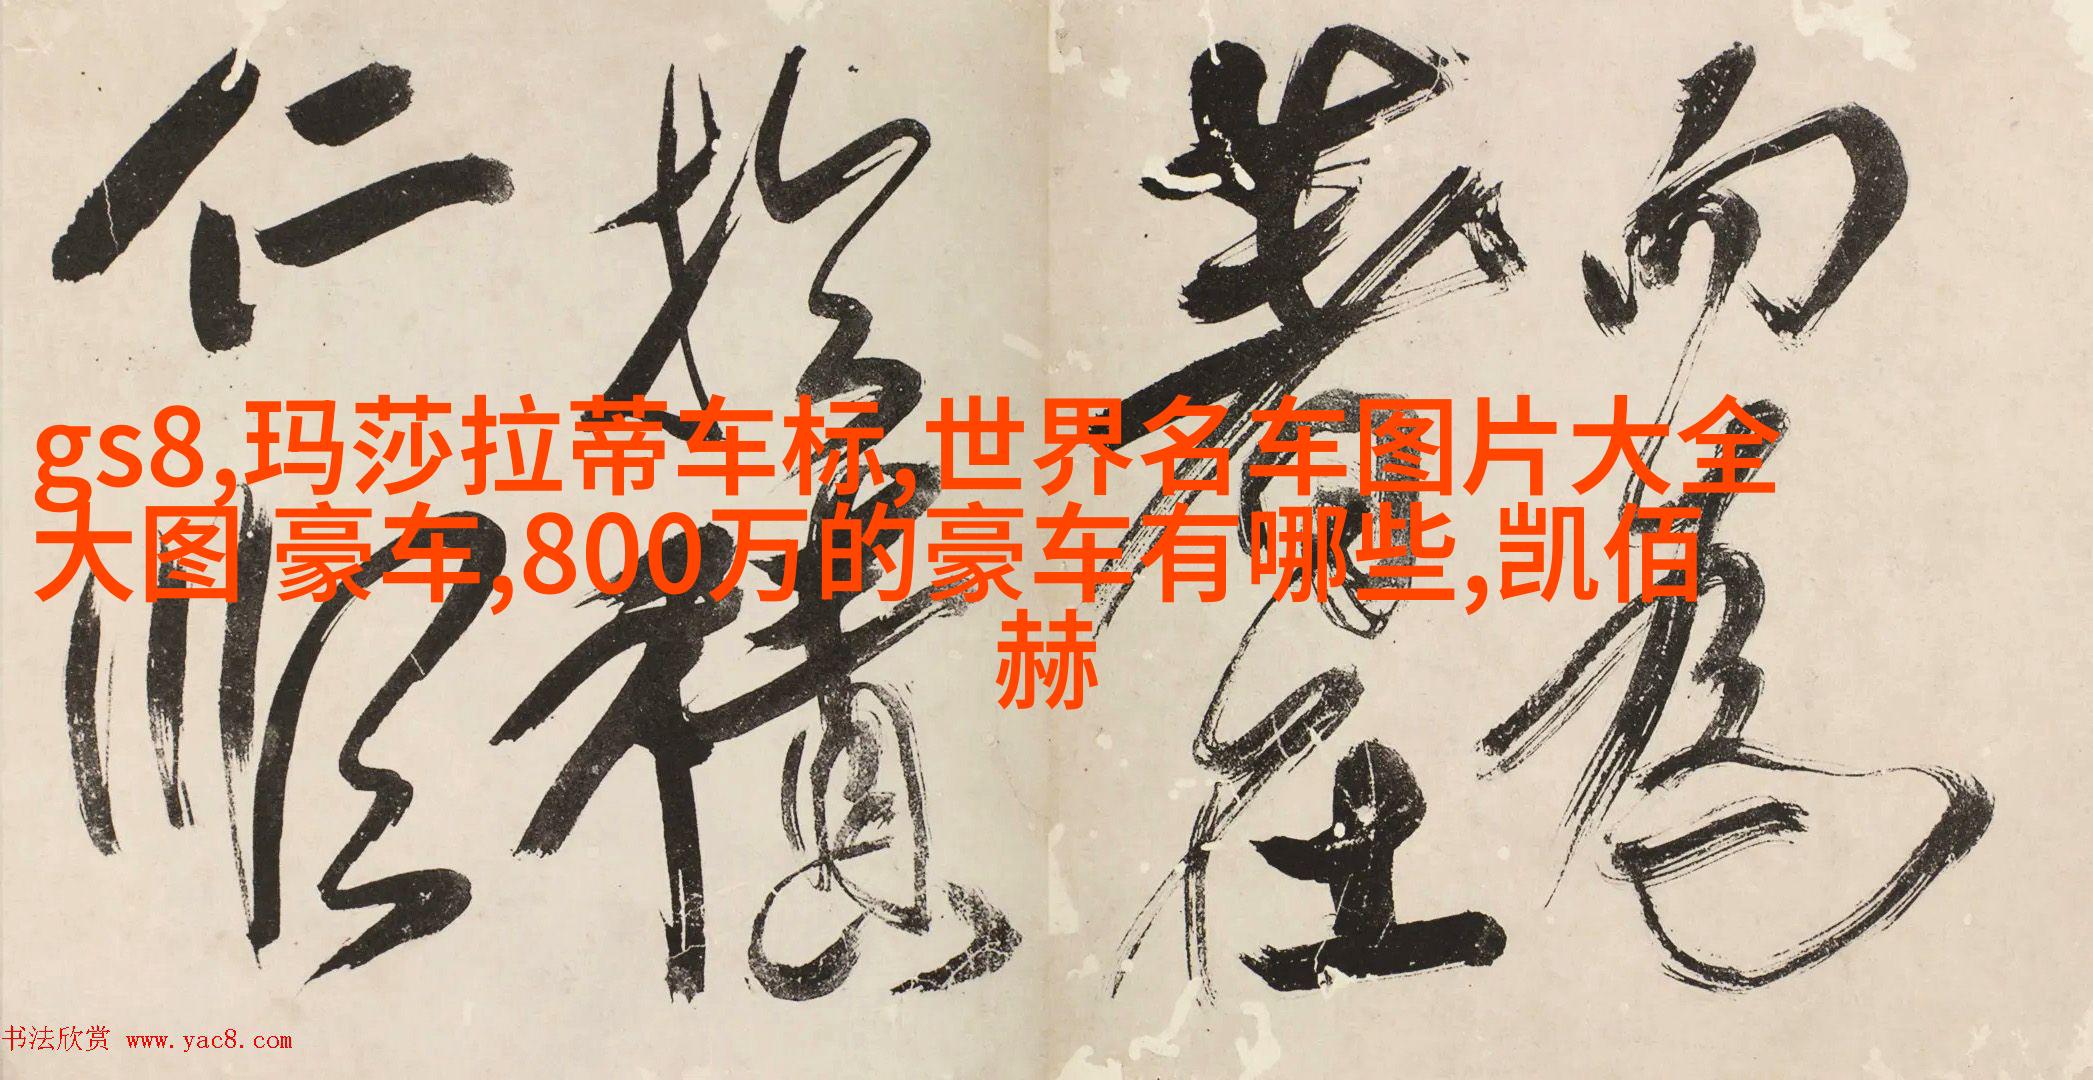 gs8,玛莎拉蒂车标,世界名车图片大全
大图 豪车,800万的豪车有哪些,凯佰
赫
而为
在
积
仁
顺
书法欣赏 www.yac8.com